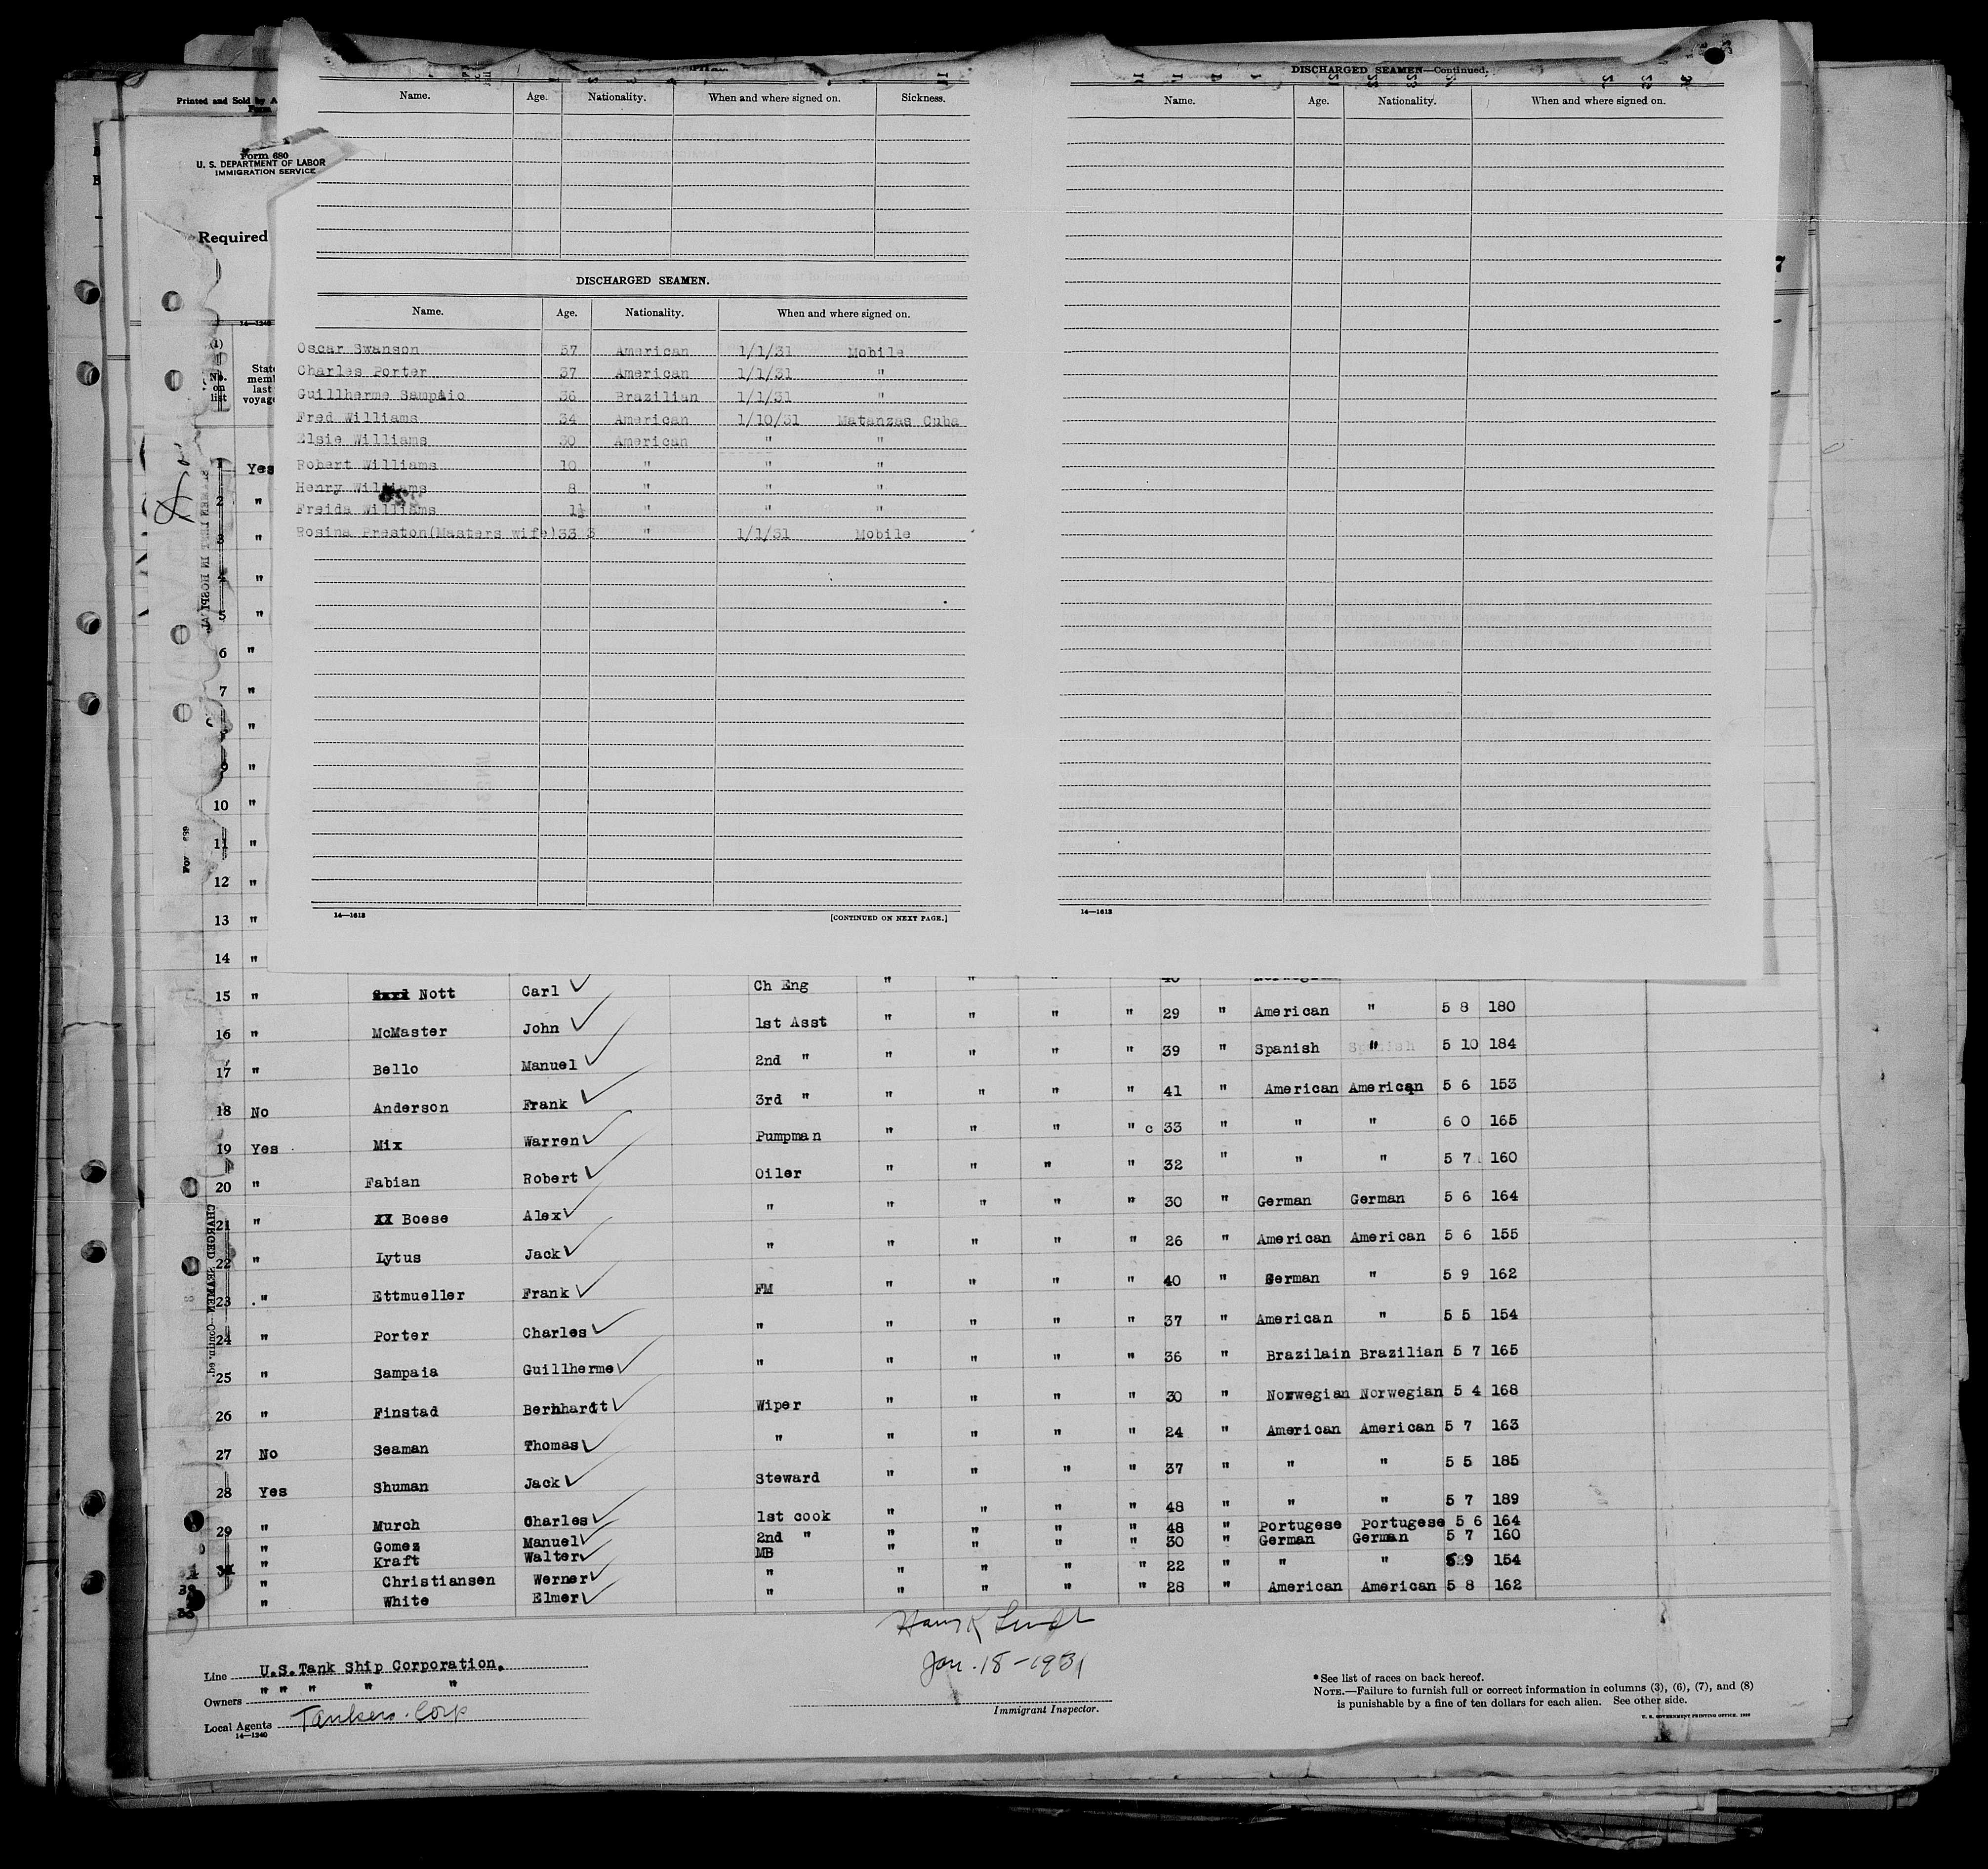 DISCHARGED SEAMEN—Continued.
Name. Age. Nationality. When and where signed on. Sickness.
Name. Age. Nationality. When and where signed on.
Printed and Sold by A
Form 680
U. S. DEPARTMENT OF LABOR
IMMIGRATION SERVICE
Required
DISCHARGED SEAMEN.
Name. Age. Nationality. When and where signed on.
14—1240
(1)
No. on list
Oscar Swanson 37 American 1/1/31 Mobile
Charles Porter 37 American 1/1/31 "
Guillherme Sampaio 36 Brazilian 1/1/31 "
Fred Williams 34 American 1/10/31 Matanzas Cuba
Elsie Williams 30 American " "
Robert Williams 10 " " "
Henry Williams 8 " " "
Freida Williams 1½ " " "
Rosina Preston(Masters wife)33 3 " 1/1/31 Mobile
1 Yes
2 "
3 "
4 "
5 "
6 "
7 "
"
9 "
10 "
11 "
12 "
13 "
14—1613 [CONTINUED ON NEXT PAGE.] 14—1613
14 "
15 " Nott Carl Ch Eng " " " 
16 " McMaster John 1st Asst " " " " 29 " American " 5 8 180
17 " Bello Manuel 2nd " " " " " 39 " Spanish " 5 10 184
18 No Anderson Frank 3rd " " " " " 41 " American American 5 6 153
19 Yes Mix Warren Pumpman " " " " c 33 " " " 6 0 165
20 " Fabian Robert Oiler " " " " 32 " " " 5 7 160
21 " Boese Alex " " " " " 30 " German German 5 6 164
22 " Lytus Jack " " " " " 26 " American American 5 6 155
23 " Ettmueller Frank FM " " " " 40 " German " 5 9 162
24 " Porter Charles " " " " " 37 " American " 5 5 154
25 " Sampaia Guillherme " " " " " 36 " Brazilain Brazilian 5 7 165
26 " Finstad Bernhardt Wiper " " " " 30 " Norwegian Norwegian 5 4 168
27 No Seaman Thomas " " " " " 24 " American American 5 7 163
28 Yes Shuman Jack Steward " " " " 37 " " " 5 5 185
29 " Murch Charles 1st cook " " " " 48 " " " 5 7 189
" Gomez Manuel 2nd " " " " " 48 " Portugese Portugese 5 6 164
" Kraft Walter MB " " " " 30 " German German 5 7 160
" Christiansen Werner " " " " " 22 " " " 5 9 154
" White Elmer " " " " " 28 " American American 5 8 162
Jan. 18-1931
Line U.S.Tank Ship Corporation.
Owners " " " " "
Local Agents Tankers Corp
14—1240
Immigrant Inspector.
*See list of races on back hereof.
NOTE.—Failure to furnish full or correct information in columns (3), (6), (7), and (8)
is punishable by a fine of ten dollars for each alien. See other side.